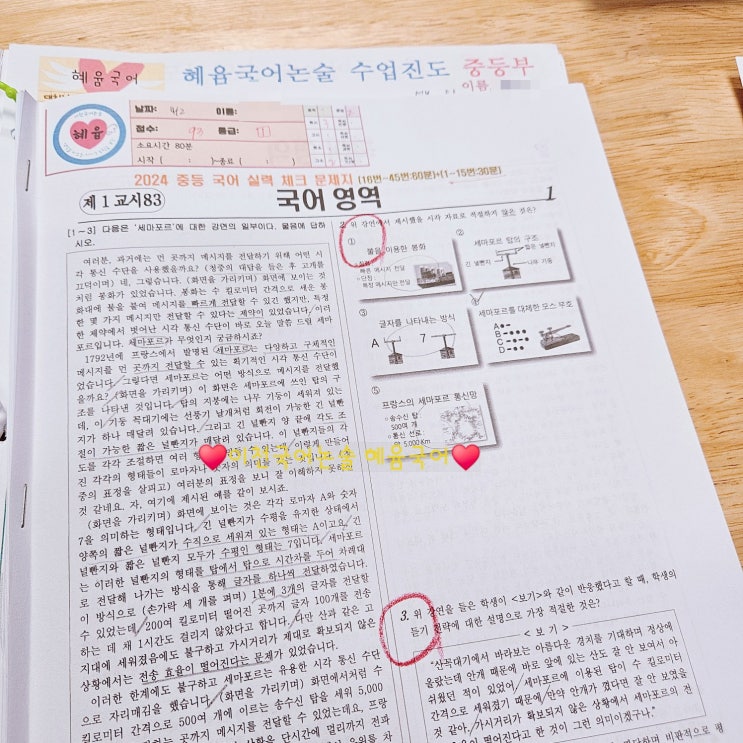 혜윰국어
혜윰국어논술 수업진도 중등부
이름
혜윰
날짜: 이름:
점수: 93 등급: 1
소요시간 80분
시작 ( : )~종료 ( : )
2024 중등 국어 실력 체크 문제지 [16번~45번:60분]+[1~15번:30분]
제 1 교시83
국어 영역
1
[1~3] 다음은 '세마포르'에 대한 강연의 일부이다. 물음에 답하
시오.
여러분, 과거에는 먼 곳까지 메시지를 전달하기 위해 어떤 시
각 통신 수단을 사용했을까요? (청중의 대답을 들은 후 고개를
끄덕이며) 네, 그렇습니다. (화면을 가리키며) 화면에 보이는 것
처럼 봉화가 있었습니다. 봉화는 수 킬로미터 간격으로 세운 봉
화대에 불을 붙여 메시지를 빠르게 전달할 수 있긴 했지만, 특정
한 몇 가지 메시지만 전달할 수 있다는 제약이 있었습니다. 이러
한 제약에서 벗어난 시각 통신 수단이 바로 오늘 말씀 드릴 세마
포르입니다. 세마포르가 무엇인지 궁금하시죠?
1792년에 프랑스에서 발명된 세마포르는 다양하고 구체적인
메시지를 먼 곳까지 전달할 수 있는 획기적인 시각 통신 수단이
었습니다. 그렇다면 세마포르는 어떤 방식으로 메시지를 전달했
을까요? (화면을 가리키며) 이 화면은 세마포르에 쓰인 탑의 구
조를 나타낸 것입니다. 탑의 지붕에는 나무 기둥이 세워져 있는
데, 이 기둥 꼭대기에는 선풍기 날개처럼 회전이 가능한 긴 널빤
지가 하나 매달려 있습니다. 그리고 긴 널빤지 양 끝에 각도 조
절이 가능한 짧은 널빤지가 매달려 있습니다. 이 널빤지들의 각
도를 각각 조절하면 여러 형태를 만들 수 있는데, 이렇게 만들어
진 각각의 형태들이 로마자나 숫자의 의미를
중의 표정을 살피고) 여러분의 표정을 보니 잘 이해하지 못하
것 같네요. 자, 여기에 제시된 예를 같이 보시죠.
(화면을 가리키며) 화면에 보이는 것은 각각 로마자 A와 숫자
7을 의미하는 형태입니다. 긴 널빤지가 수평을 유지한 상태에서
양쪽의 짧은 널빤지가 수직으로 세워져 있는 형태는 A이고요, 긴
널빤지와 짧은 널빤지 모두가 수평인 형태는 7입니다. 세마포르
는 이러한 널빤지의 형태를 탑에서 탑으로 시간차를 두어 차례대
로 전달해 나가는 방식을 통해 글자를 하나씩 전달하였습니다.
이 방식으로 (손가락 세 개를 펴며) 1분에 3개의 글자를 전달할
수 있었는데, 200여 킬로미터 떨어진 곳까지 글자 100개를 전송
하는 데 채 1시간도 걸리지 않았다고 합니다. 다만 산과 같은 고
지대에 세워졌음에도 불구하고 가시거리가 제대로 확보되지 않은
상황에서는 전송 효율이 떨어진다는 문제가 있었습니다.
이러한 한계에도 불구하고 세마포르는 유용한 시각 통신 수단
으로 자리매김을 했습니다. (화면을 가리키며) 화면에서처럼 수
킬로미터 간격으로 500여 개에 이르는 송수신 탑을 세워 5,000
곳까지 메시지를 전달할 수 있었는데요, 프랑
상황을 단시간에 멀리까지 전파
2. 위 강연에서 제시했을 시각 자료로 적절하지 않은 것은?
①
불을 이용한 봉화
• 장점
빠른 메시지 전달
• 단점
특정 메시지만 전달
②
세마포르 탑의 구조
짧은 널빤지
긴 널빤지
나무 기둥
③
글자를 나타내는 방식
A
7
세마포르를 대체한 모스 부호
A
B
C
D
⑤
프랑스의 세마포르 통신망
• 송수신 탑 :
500여 개
• 통신 선로 :
약 5,000Km
♥미진국어논술 혜윰국어♥
3. 위 강연을 들은 학생이 <보기>와 같이 반응했다고 할 때, 학생의
듣기 전략에 대한 설명으로 가장 적절한 것은?
< 보 기 >
"산꼭대기에서 바라보는 아름다운 경치를 기대하며 정상에
올랐는데 안개 때문에 바로 앞에 있는 산도 잘 안 보여서 아
쉬웠던 적이 있었어. 세마포르에 이용된 탑이 수 킬로미터
간격으로 세워졌기 때문에 만약 안개가 꼈다면 잘 안 보였을
것 같아. 가시거리가 확보되지 않은 상황에서 세마포르의 전
송 효율이 떨어진다고 한 것이 그런 의미이겠구나."
비판적으로 평